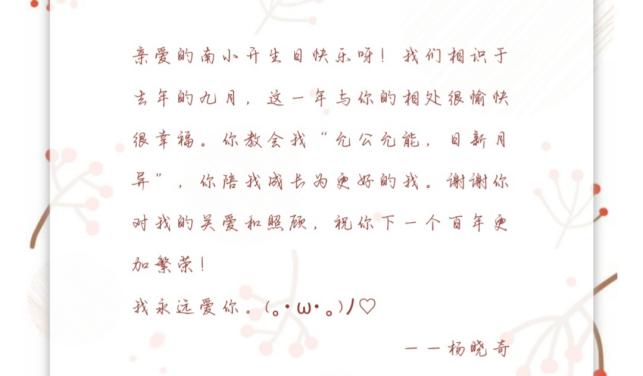 亲爱的南小开生日快乐呀！我们相识于
去年的九月，这一年与你的相处很愉快
很幸福。你教会我“允公允能，日新月
异”，你陪我成长为更好的我。谢谢你
对我的关爱和照顾，祝你下一个百年更
加繁荣！
我永远爱你。(｡･ω･｡)ﾉ♡
——杨晓奇